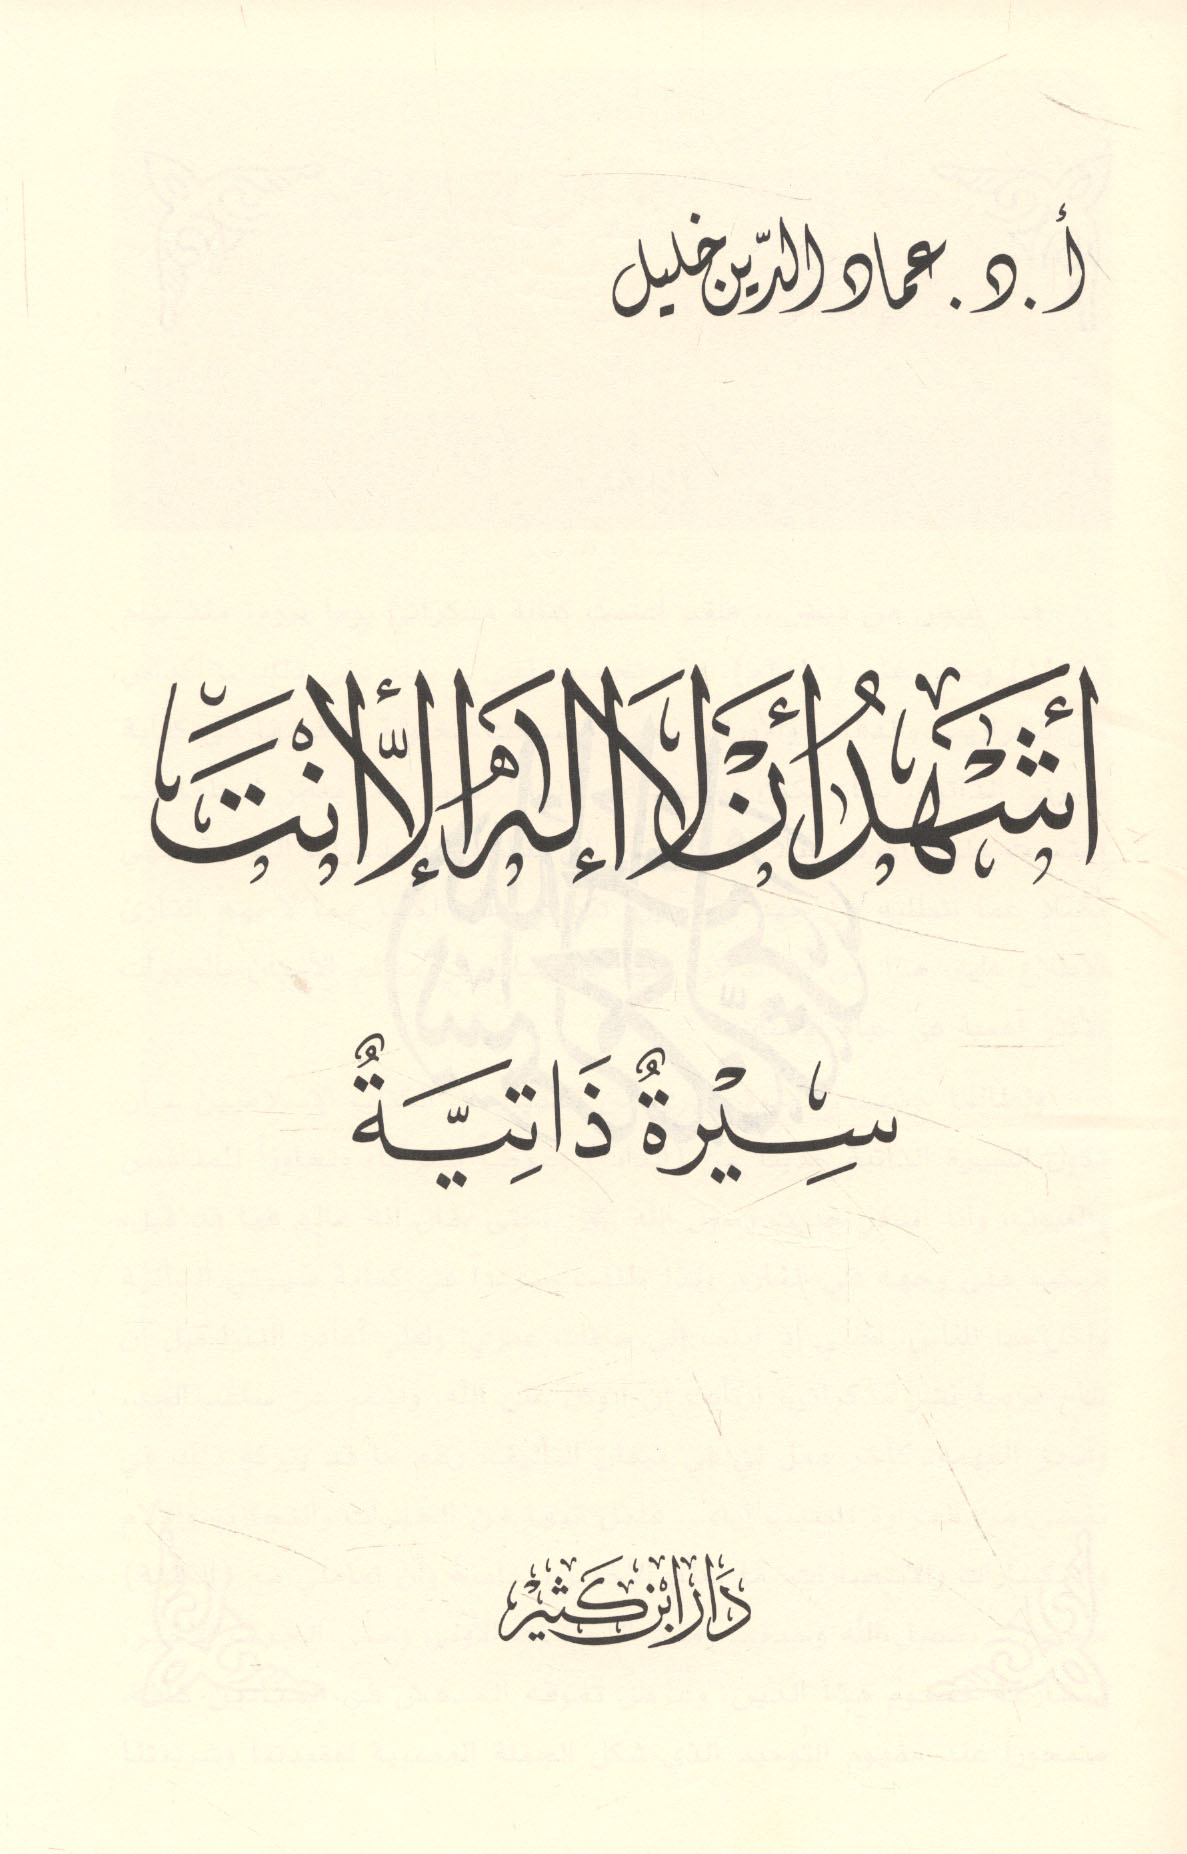 أ. د. عماد الدّين خليل
أَشْهَدُ أَنْ لَا إِلٰهَ إِلَّا أَنْتَ
سِيْرَةٌ ذَاتِيَّةٌ
دَار ابْن كَثيْر